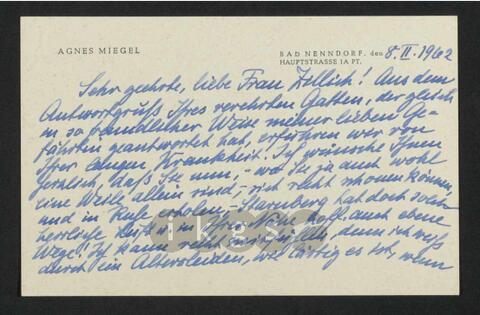 AGNES MIEGEL
BAD NENNDORF, den 8. II. 1962
HAUPTSTRASSE 1A PT.
Sehr geehrte, liebe Frau Zillich! Aus dem
Antwortgruß Ihres verehrten Gatten, der gleich
in so freundlicher Weise meiner lieben Ge-
fährtin geantwortet hat, erfuhren wir von
Ihrer langen Krankheit. Ich wünsche Ihnen
herzlich, daß Sie nun, – wo Sie ja auch wohl
eine Weile allein sind, – sich recht schonen können
und in Ruhe erholen, – Starnberg hat doch solch
herrliche Luft u. auch ebene
Wege! Ich kann denn ich weiß
durch ein Altersleiden, wie lästig es ist, wenn